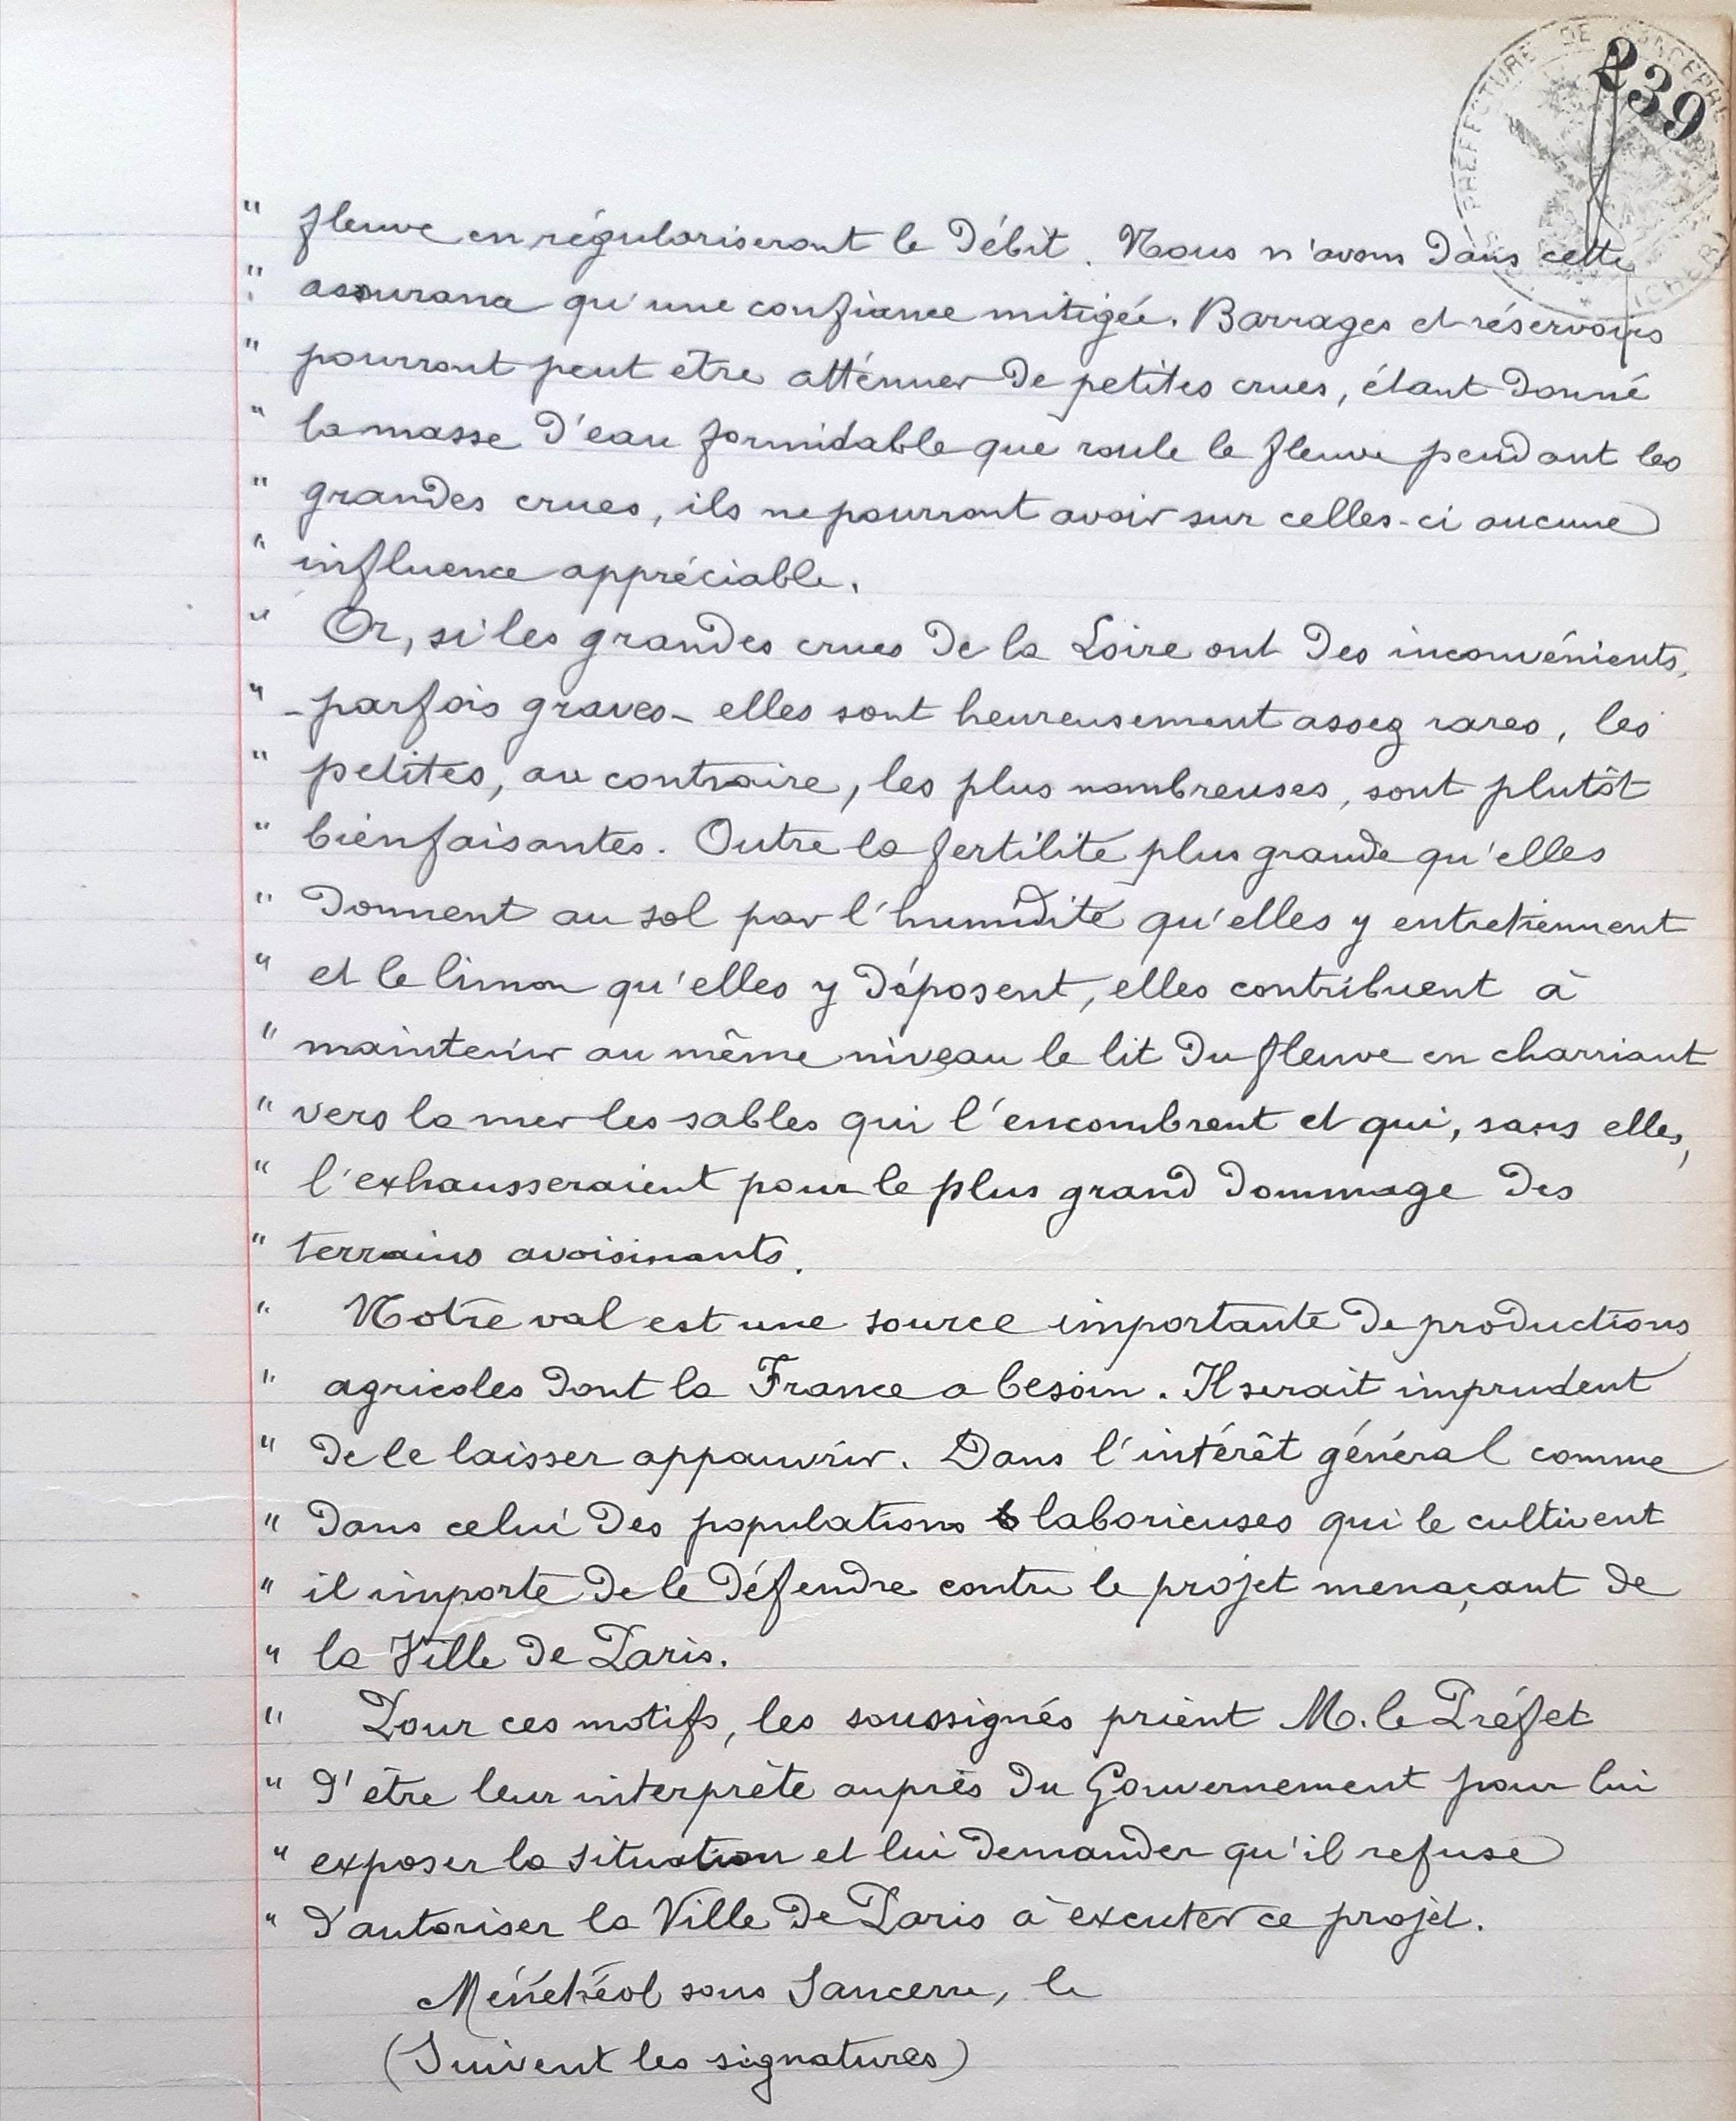 239
PRÉFECTURE DE SANCERRE
(CHER)
" fleuve en régulariseront le débit. Nous n'avons dans cette
" assurance qu'une confiance mitigée. Barrages et réservoirs
" pourront peut être atténuer de petites crues, étant donné
" la masse d'eau formidable que roule le fleuve pendant les
" grandes crues, ils ne pourront avoir sur celles-ci aucune
" influence appréciable.
" Or, si les grandes crues de la Loire ont des inconvénients,
" - parfois graves - elles sont heureusement assez rares, les
" petites, au contraire, les plus nombreuses, sont plutôt
" bienfaisantes. Outre la fertilité plus grande qu'elles
" donnent au sol par l'humidité qu'elles y entretiennent
" et le limon qu'elles y déposent, elles contribuent à
" maintenir au même niveau le lit du fleuve en charriant
" vers la mer les sables qui l'encombrent et qui, sans elles,
" l'exhausseraient pour le plus grand dommage des
" terrains avoisinants.
" Notre val est une source importante de productions
" agricoles dont la France a besoin. Il serait imprudent
" de le laisser appauvrir. Dans l'intérêt général comme
" dans celui des populations laborieuses qui le cultivent
" il importe de le défendre contre le projet menaçant de
" la Ville de Paris.
" Pour ces motifs, les soussignés prient M. le Préfet
" d'être leur interprète auprès du Gouvernement pour lui
" exposer la situation et lui demander qu'il refuse
" d'autoriser la Ville de Paris à executer ce projet.
Ménétréol sous Sancerre, le
(Suivent les signatures)